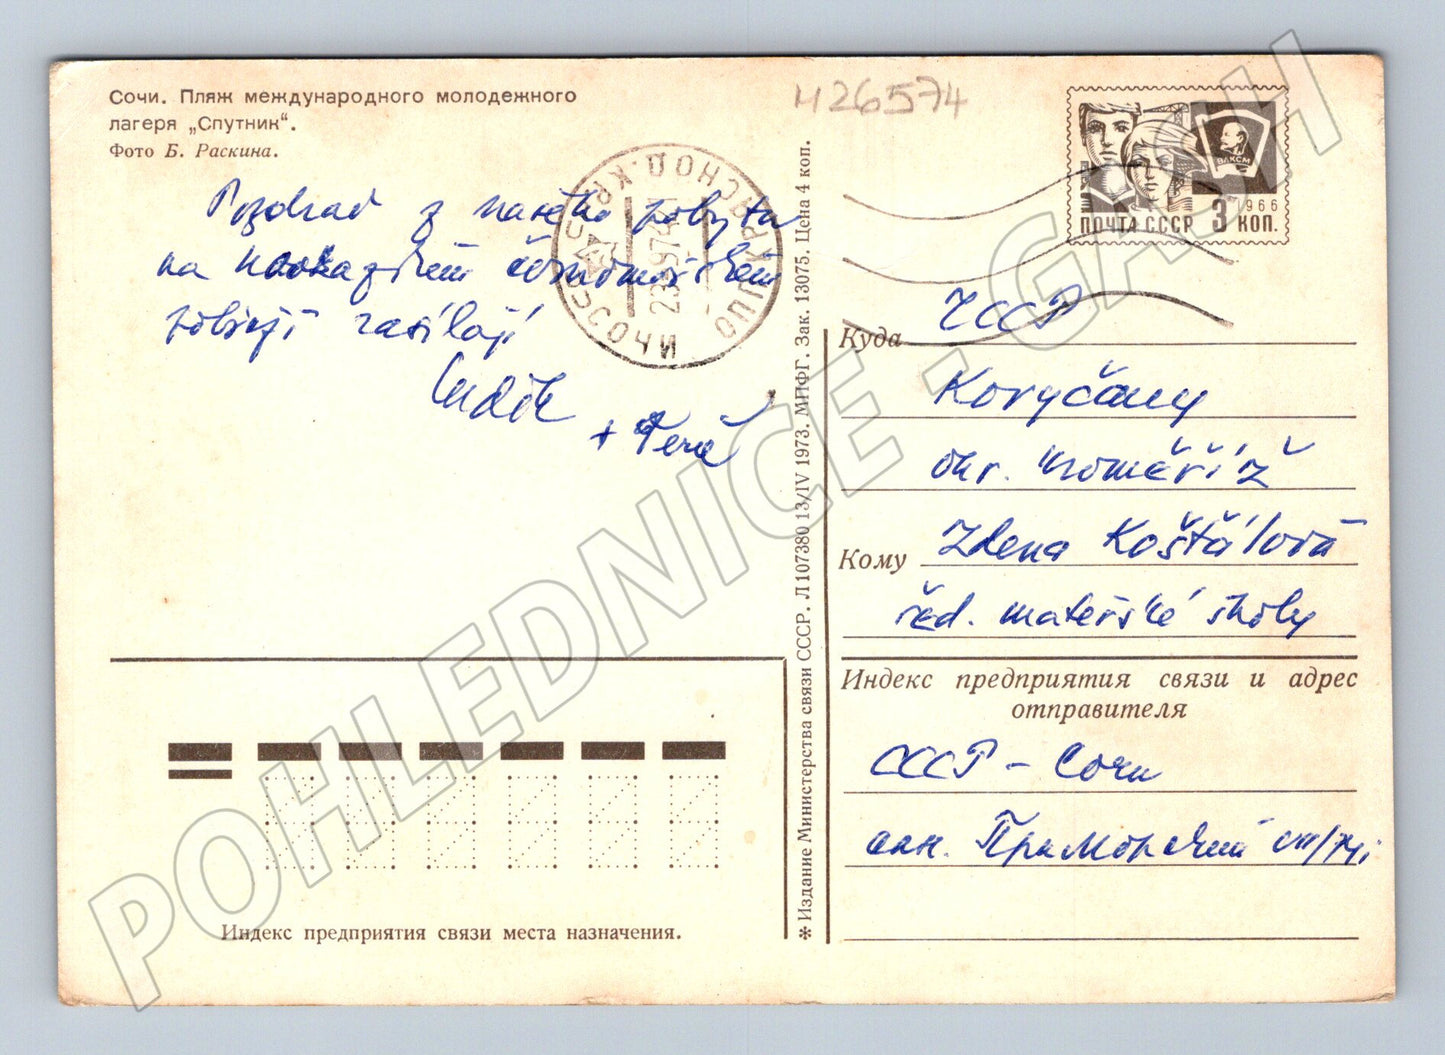 Сочи. Пляж международного молодежного
лагеря „Спутник“.
Фото Б. Раскина.
426574
ВЛКСМ
1966
ПОЧТА СССР 3 КОП.
Pozdrav z našeho pobytu
na
zasílají
Luděk
+
* Издание Министерства связи СССР. Л107380 13/IV 1973. МПФГ. Зак. 13075. Цена 4 коп.
Куда ČССР
Koryčany
okr. Kroměříž
Кому Zdena Košťálová
řed. mateřské školy
Индекс предприятия связи и адрес
отправителя
СССР – Сочи
сан. Приморский
Индекс предприятия связи места назначения.
POHLEDNICE - GASH